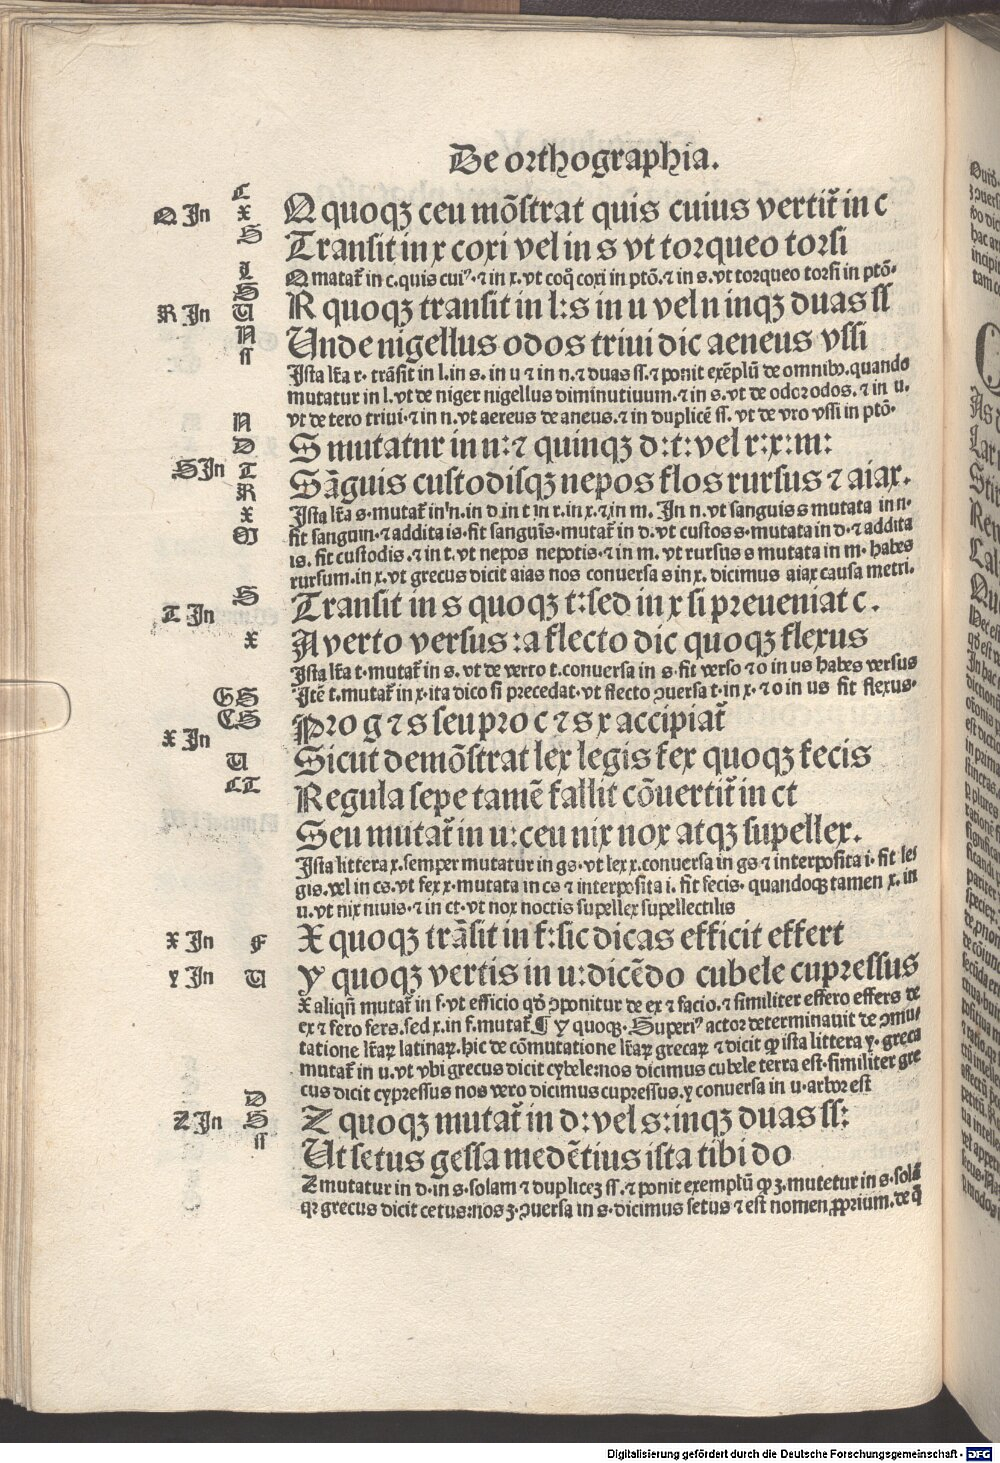 De orthographia.
C
Q In X Q quoqꝫ ceu mõstrat quis cuius vertit᷑ in c
S Transit in x coxi vel in s vt torqueo torsi
Q mutat᷑ in c. quis cuiꝰ. ⁊ in x. vt coq̃ coxi in ptõ. ⁊ in s. vt torqueo torsi in ptõ.
L
S
R In U R quoqꝫ transit in l: s in u vel n inqꝫ duas ss
N
ss Unde nigellus odos triui dic aeneus vssi
Ista lr̃a r. trãsit in l. in s. in u ⁊ in n. ⁊ duas ss. ⁊ ponit exẽplũ de omnibꝫ. quando
mutatur in l. vt de niger nigellus diminutiuum. ⁊ in s. vt de odor odos. ⁊ in u.
vt de tero triui. ⁊ in n. vt aereus de aneus. ⁊ in duplicẽ ss. vt de vro vssi in ptõ.
N
D S mutatur in n: ⁊ quinqꝫ d: t: vel r: x: m:
S In T
R Sãguis custodisqꝫ nepos flos rursus ⁊ aiax.
X Ista lr̃a s. mutat᷑ in n. in d. in t in r. in x. ⁊ in m. In n. vt sanguis s mutata in n.
M fit sanguin. ⁊ addita is. fit sanguĩs. mutat᷑ in d. vt custos s. mutata in d. ⁊ addita
is. fit custodis. ⁊ in t. vt nepos nepotis. ⁊ in m. vt rursus s mutata in m. habes
rursum. in x. vt grecus dicit aias nos conuersa s in x. dicimus aiax causa metri.
S
T In Transit in s quoqꝫ t: sed in x si preueniat c.
X A verto versus: a flecto dic quoqꝫ flexus
Ista lr̃a t. mutat᷑ in s. vt de verto t. conuersa in s. fit verso ⁊ o in us habes versus
Itẽ t. mutat᷑ in x. ita dico si precedat. vt flecto ꝯuersa t. in x. ⁊ o in us fit flexus.
GS
CS Pro g ⁊ s seu pro c ⁊ s x accipiat᷑
X In
U Sicut demõstrat lex legis fex quoqꝫ fecis
CT Regula sepe tamẽ fallit cõuertit᷑ in ct
Seu mutat᷑ in u: ceu nix nox atqꝫ supellex.
Ista littera x. semper mutatur in gs. vt lex x. conuersa in gs ⁊ interposita i. fit le
gis. vel in cs. vt fex x. mutata in cs ⁊ interposita i. fit fecis. quandoqꝫ tamen x. in
u. vt nix niuis. ⁊ in ct. vt nox noctis supellex supellectilis
X In F X quoqꝫ trãsit in f: sic dicas efficit effert
Y In U Y quoqꝫ vertis in u: dicẽdo cubele cupressus
X aliqñ mutat᷑ in f. vt efficio qď ꝯponitur de ex ⁊ facio. ⁊ similiter effero effers de
ex ⁊ fero fers. sed x. in f. mutat᷑ ¶ Y quoqꝫ. Superiꝰ actor determinauit de ꝯmu
tatione lr̃aꝝ latinaꝝ. hic de cõmutatione lr̃aꝝ grecaꝝ ⁊ dicit ꝙ ista littera y. greca
mutat᷑ in u. vt vbi grecus dicit cybele: nos dicimus cubele terra est. similiter gre
cus dicit cypressus nos vero dicimus cupressus. y conuersa in u. arbor est
D
Z In S Z quoqꝫ mutat᷑ in d: vel s: inqꝫ duas ss:
ss Ut setus gessa medẽtius ista tibi do
Z mutatur in d. in s. solam ⁊ duplicez ss. ⁊ ponit exemplũ ꝙ ꝫ. mutetur in s. solã
qꝛ grecus dicit cetus: nos ꝫ. ꝯuersa in s. dicimus setus ⁊ est nomen ꝓprium. de q̃
Digitalisierung gefördert durch die Deutsche Forschungsgemeinschaft - DFG